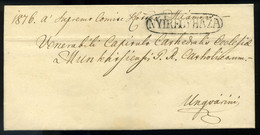 1876. a Supremo Comite
NYIREGYHÁZA
Venerabili Capitulo Cathedralis Ecclesiae
Munkacsiensis G. R. Catholicorum
Ungvárini